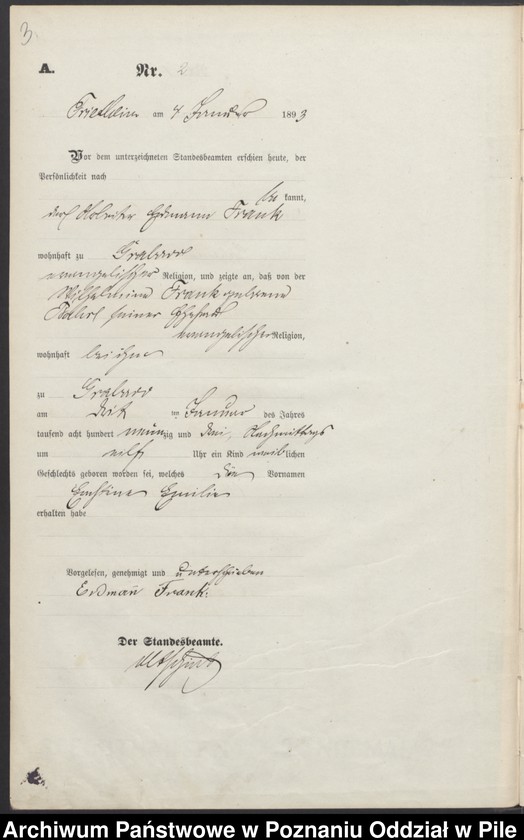 3.
A. Nr. 2
am 4 Januar 1893
Vor dem unterzeichneten Standesbeamten erschien heute, der
Persönlichkeit nach
be kannt,
der Arbeiter Erdmann Frank
wohnhaft zu Grabau
evangelischer Religion, und zeigte an, daß von der
Wilhelmine Frank geborene
seiner Ehefrau
evangelischer Religion,
wohnhaft bei ihm
zu Grabau
am im Januar des Jahres
tausend acht hundert neunzig und drei, Nachmittags
um elf Uhr ein Kind weiblichen
Geschlechts geboren worden sei, welches die Vornamen
Emilie
erhalten habe
Vorgelesen, genehmigt und unterschrieben
Erdman Frank.
Der Standesbeamte.
Archiwum Państwowe w Poznaniu Oddział w Pile